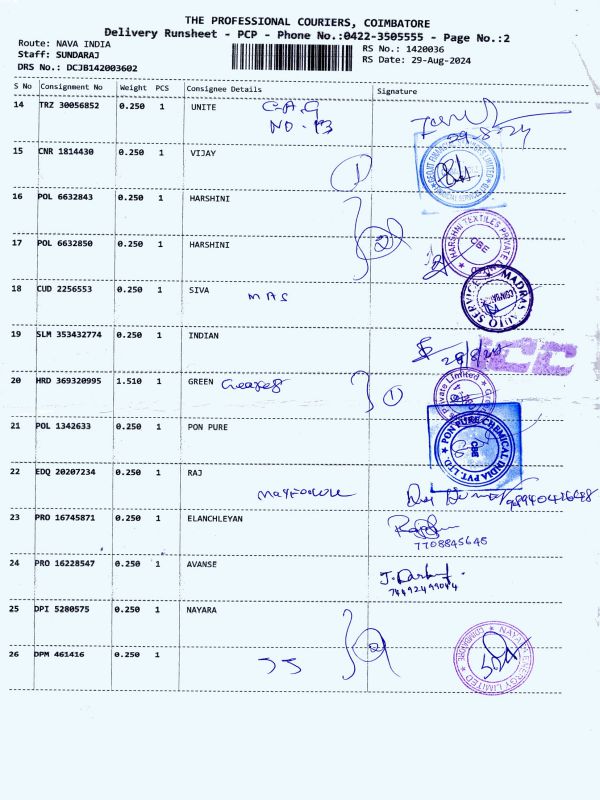 THE PROFESSIONAL COURIERS, COIMBATORE
Delivery Runsheet - PCP - Phone No.:0422-3505555 - Page No.:2
Route: NAVA INDIA
Staff: SUNDARAJ
DRS No.: DCJB142003602
RS No.: 1420036
RS Date: 29-Aug-2024
S No Consignment No Weight PCS Consignee Details Signature
14 TRZ 30056852 0.250 1 UNITE C-A.G
NO-93
29-8-24
15 CNR 1814430 0.250 1 VIJAY
1
16 POL 6632843 0.250 1 HARSHINI
2
17 POL 6632850 0.250 1 HARSHINI
HARSHNI TEXTILES PRIVATE
CBE
18 CUD 2256553 0.250 1 SIVA
MAS
MADRAS AUTO SERVICE
19 SLM 353432774 0.250 1 INDIAN
20 HRD 369320995 1.510 1 GREEN
1
Private Limited
21 POL 1342633 0.250 1 PON PURE
PON PURE CHEMICAL INDIA PVT. LTD
22 EDQ 20207234 0.250 1 RAJ
23 PRO 16745871 0.250 1 ELANCHLEYAN
7708845645
24 PRO 16228547 0.250 1 AVANSE
25 DPI 5280575 0.250 1 NAYARA
2
26 DPM 461416 0.250 1
JJ
NAYARA ENERGY LIMITED